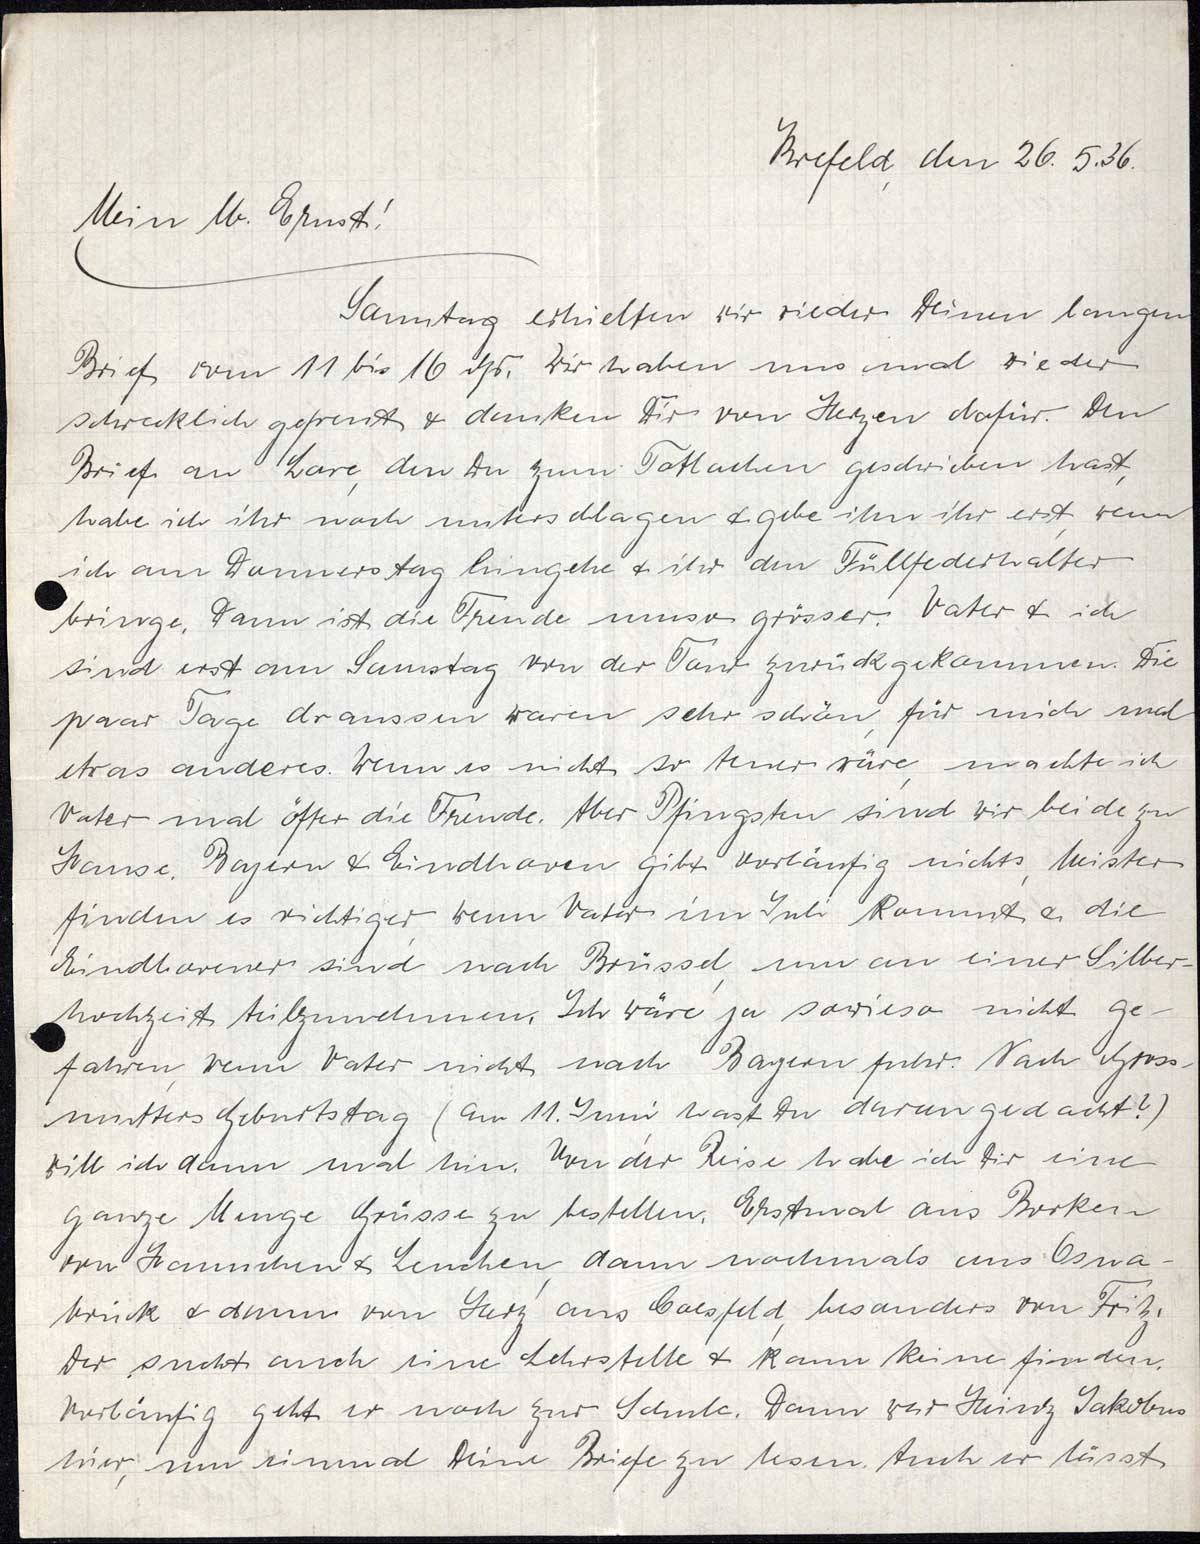 Krefeld, den 26. 5.36.
Mein lb. Ernst!
Samstag erhielten wir wieder Deinen langen
Brief vom 11 bis 16 ds. Wir haben uns mal wieder
schrecklich gefreut & danken Dir von Herzen dafür. Den
Brief an Lore, den Du zum Totlachen geschrieben hast,
habe ich ihr noch unterschlagen & gebe ihn ihr erst, wenn
ich am Donnerstag hingehe & ihr den Füllfederhalter
bringe. Dann ist die Freude umso grösser. Vater & ich
sind erst am Samstag von der Tour zurückgekommen. Die
paar Tage draussen waren sehr schön, für mich mal
etwas anderes. Wenn es nicht so teuer wäre, machte ich
Vater mal öfter die Freude. Aber Pfingsten sind wir beide zu
Hause. Bayern & Eindhoven gibt vorläufig nichts, Meister
finden es richtiger wenn Vater im Juli kommt & die
Eindhovener sind nach Brüssel, um an einer Silber-
hochzeit teilzunehmen. Ich wäre ja sowieso nicht ge-
fahren, wenn Vater nicht nach Bayern fuhr. Nach Gross-
mutters Geburtstag (am 11. Juni hast Du daran gedacht?)
will ich dann mal hin. Von der Reise habe ich Dir eine
ganze Menge Grüsse zu bestellen. Erstmal aus Borken
von Hannchen & Lenchen, dann nochmals aus Osna-
brück & dann von Herz aus Coesfeld, besonders von Fritz.
Der sucht auch eine Lehrstelle & kann keine finden.
Vorläufig geht er noch zur Schule. Dann war Heinz Jakobus
hier, um einmal Deine Briefe zu lesen. Auch er lässt